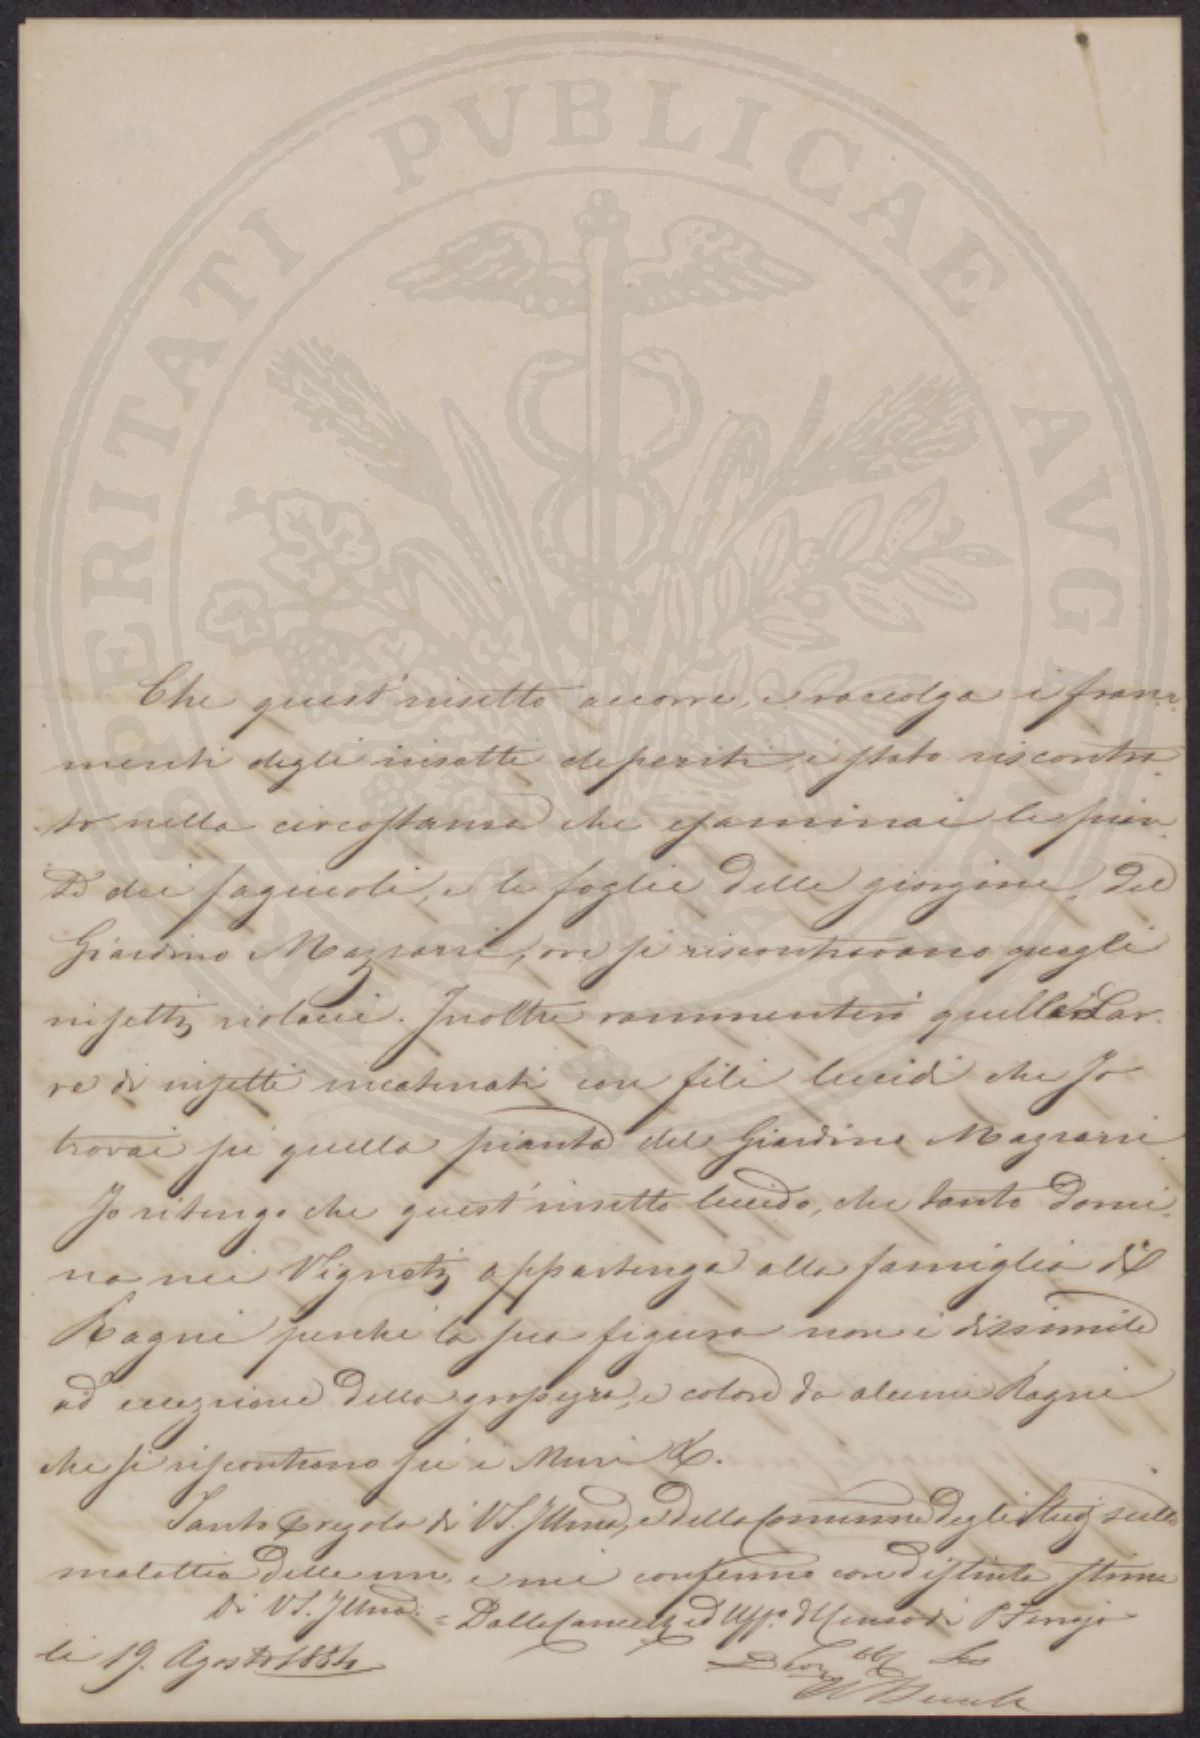 PROSPERITATI PVBLICAE AVGENDAE
Che quest'insetto accorre, e raccolga i fram-
menti degli insetti deperiti, è stato riscontra-
to nella circostanza che esaminai le pian-
te dei fagiuoli, e le foglie delle giorgine, del
Giardino Magnani, ove si riscontravano quegli
insetti violacei. Inoltre rammenterò quelle Lar-
ve di insetti incatenati con fili lucidi che Io
trovai su quella pianta del Giardino Magnani
Io ritengo che quest'insetto lucido, che tanto domi-
na nei Vigneti appartenga alla famiglia di
Ragni perché la sua figura non è dissimile
ad eccezione della grossezza, e colore da alcuni Ragni
che si riscontrano su i Muri &.
Tanto a regola di V.S. Illma, e della Comunne degli Studj sulla
malattia delle uve, e mi confermo con distinta stima
Di V.S. Illma = Dalle Cancella ed Uff.o di Censo di
li 19. Agosto 1854